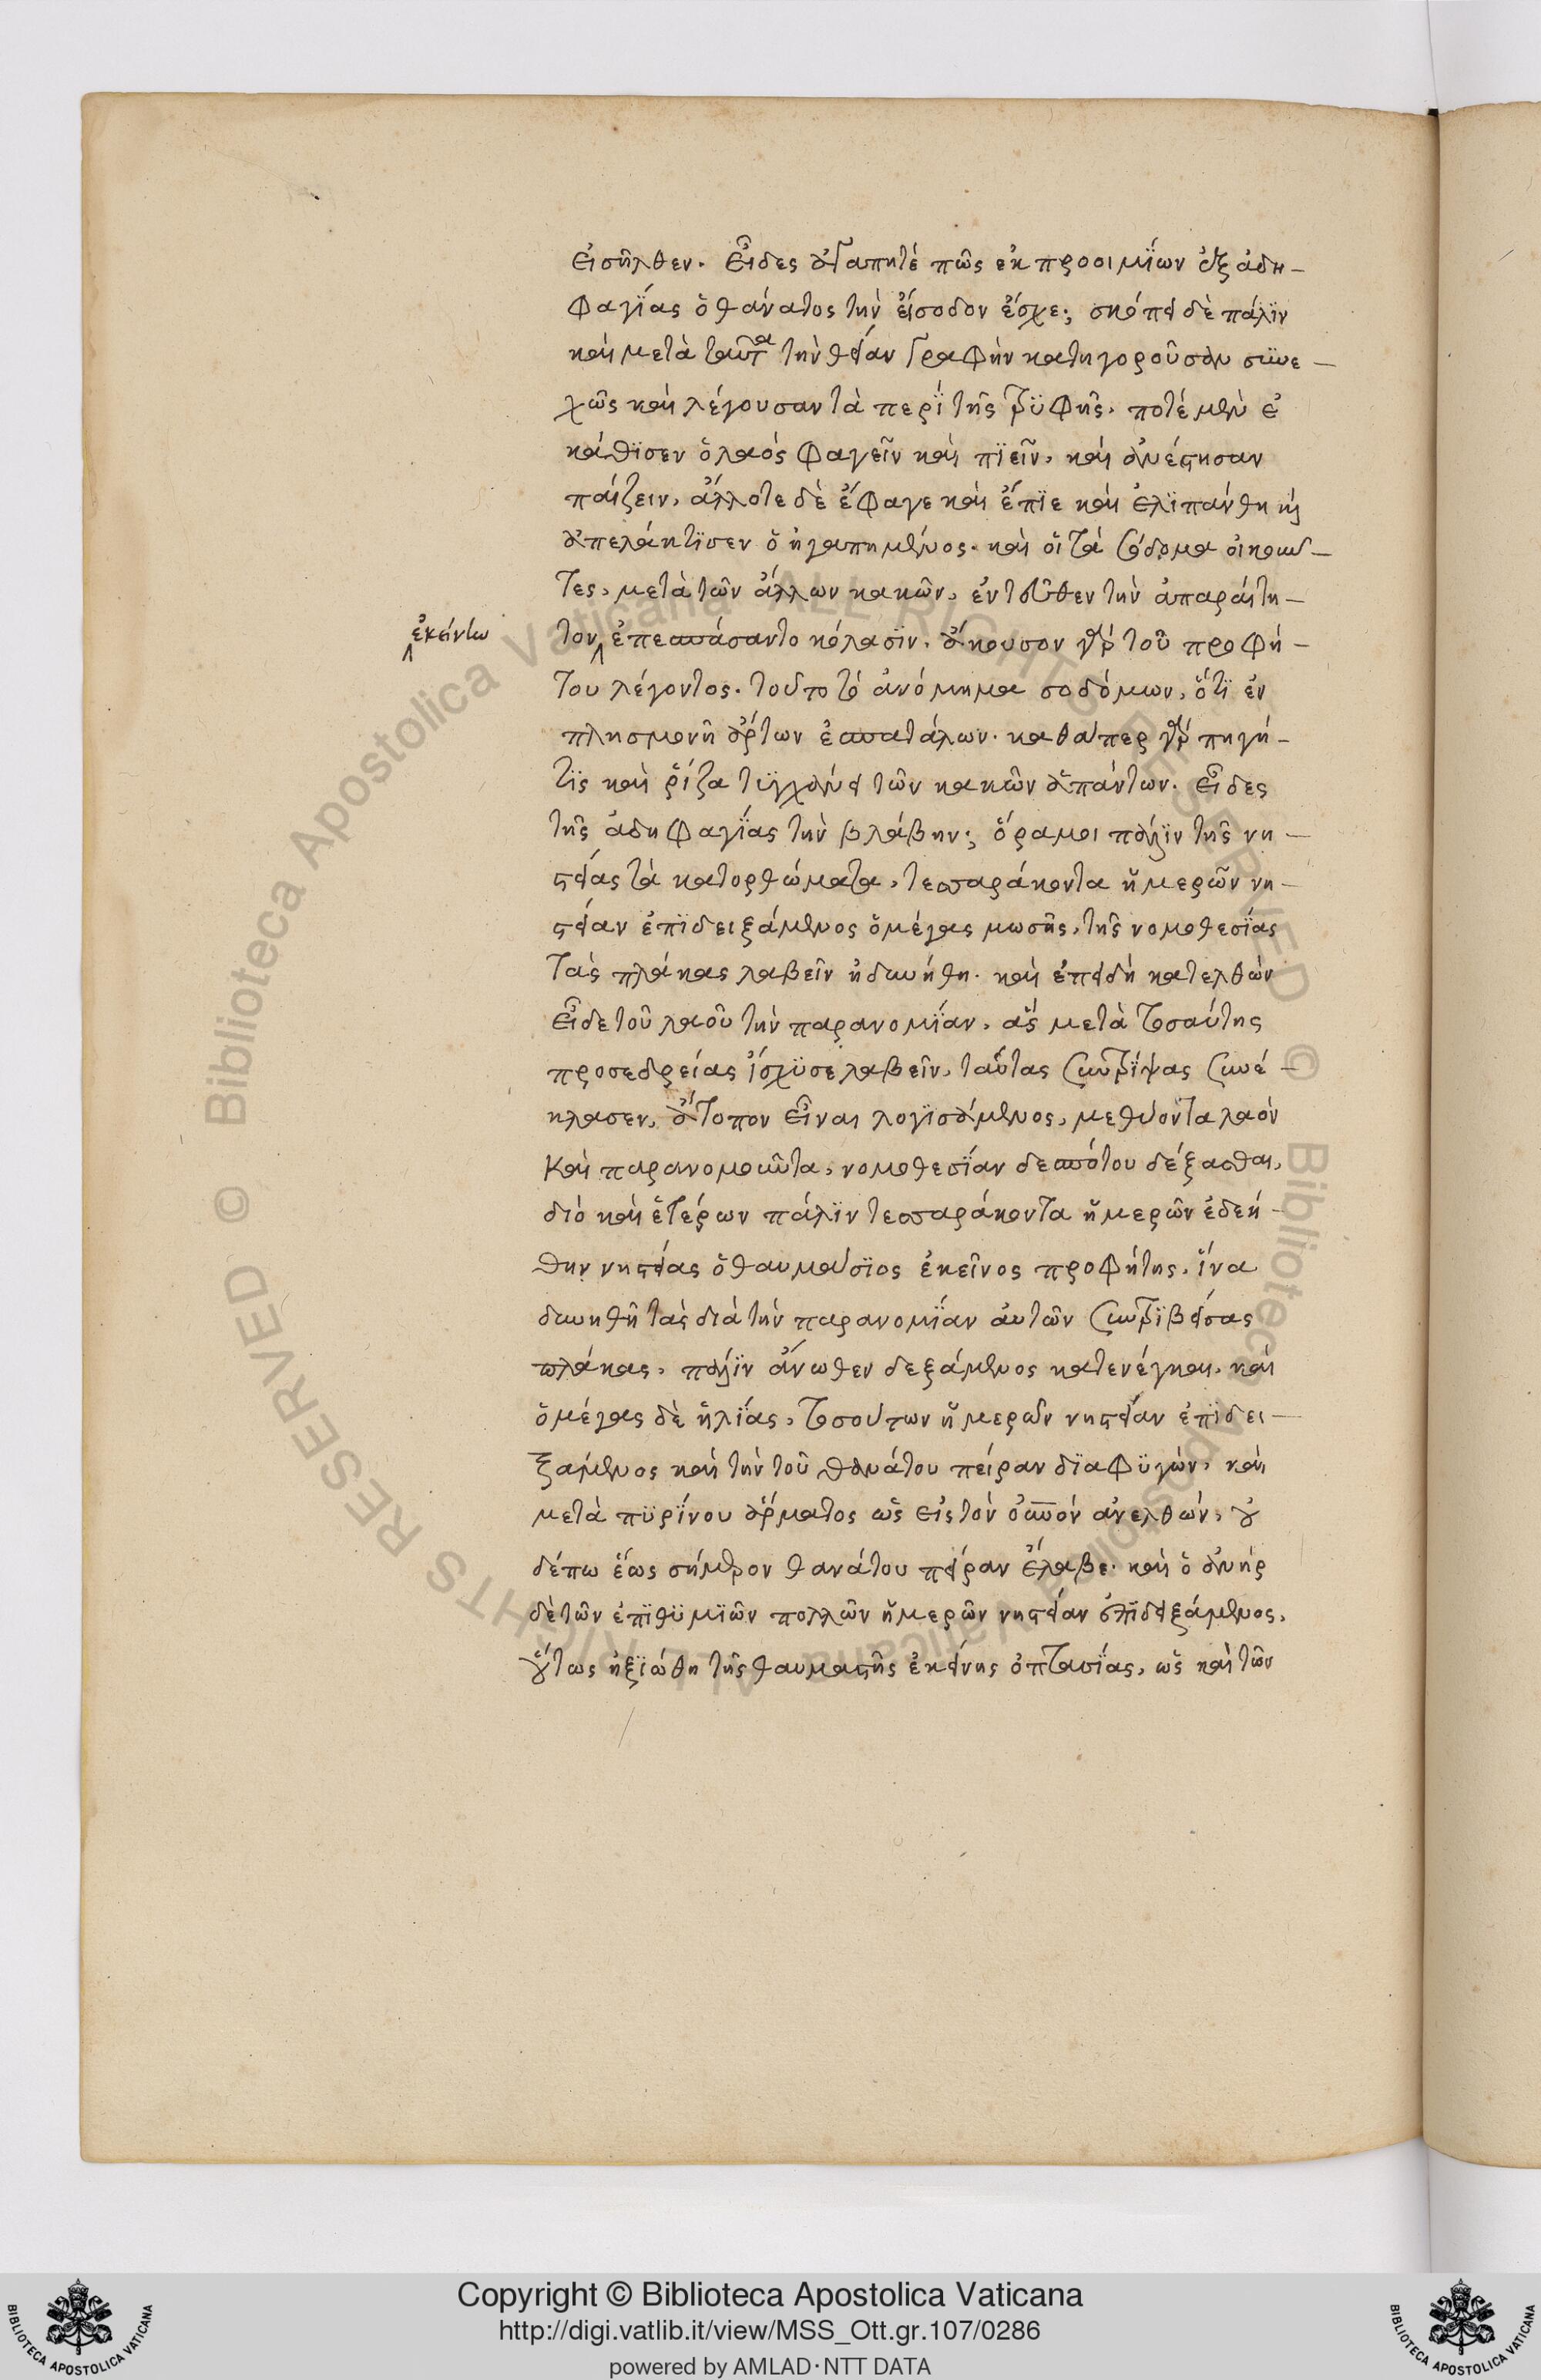 εἰσῆλθεν. εἶδες ἀγαπητέ πῶς ἐκ προοιμΐων ἐξ ἀδη-
φαγΐας ὁ θάνατος τὴν εἴσοδον ἔσχε; σκόπει δὲ πάλϊν
καὶ μετὰ ταῦτα τὴν θείαν γραφὴν κατηγοροῦσαν συνε-
χῶς καὶ λέγουσαν τὰ περὶ τῆς τρϋφῆς. ποτέ μὲν ἐ
κάθϊσεν ὁ λαός φαγεῖν καὶ πϊεῖν, καὶ ἀνέστησαν
παίζειν, ἄλλοτε δὲ ἔφαγε καὶ ἔπϊε καὶ ἐλϊπάνθη καὶ
ἀπελάκτϊσεν ὁ ἠγαπημένος. καὶ οἱ τὰ σόδομα οἰκοῦν-
τες, μετὰ τῶν ἄλλων κακῶν, ἐντεῦθεν τὴν ἀπαραίτη-
ἐκείνην
τον ἐπεσπάσαντο κόλασϊν. ἄκουσον γὰρ τοῦ προφή-
του λέγοντος. τοῦτο τό ἀνόμημα σοδόμων, ὅτϊ ἐν
πλησμονῆ ἄρτων ἐσπατάλων. καθάπερ γάρ πηγή
τϊς καὶ ῥίζα τϋγχάνει τῶν κακῶν ἁπάντων. εἶδες
τῆς ἀδηφαγΐας τὴν βλάβην; ὅρα μοι πάλϊν τῆς νη-
στείας τὰ κατορθώματα, τεσσαράκοντα ἡμερῶν νη-
στείαν ἐπϊδειξάμενος ὁ μέγας μωσῆς, τῆς νομοθεσΐας
τὰς πλάκας λαβεῖν ἠδυνήθη. καὶ ἐπειδὴ κατελθὼν
εἶδε τοῦ λαοῦ τὴν παρανομΐαν, ἃς μετὰ τοσαύτης
προσεδρείας ἴσχϋσε λαβεῖν, ταύτας συντρΐψας συνέ-
κλασεν, ἄτοπον εἶναι λογϊσάμενος, μεθύοντα λαόν
καὶ παρανομοῦντα, νομοθεσΐαν δεσπότου δέξασθαι,
διὸ καὶ ἑτέρων πάλϊν τεσσαράκοντα ἡμερῶν ἐδεή-
θην νηστείας ὁ θαυμάσϊος ἐκεῖνος προφήτης, ἵνα
δυνηθῆ τὰς διὰ τὴν παρανομΐαν αὐτῶν συντρϊβείσας
πλάκας, πάλϊν ἄνωθεν δεξάμενος κατενέγκαι. καὶ
ὁ μέγας δὲ ἡλΐας, τοσούτων ἡμερῶν νηστείαν ἐπϊδει-
ξάμενος καὶ τὴν τοῦ θανάτου πείραν δϊαφϋγών, καὶ
μετὰ πϋρΐνου ἅρματος ὡς εἰς τὸν οὐνον ἀνελθών, οὐ
δέπω ἕως σήμερον θανάτου πείραν ἔλαβε. καὶ ὁ ἀνὴρ
δὲ τῶν ἐπϊθϋμϊῶν πολλῶν ἡμερῶν νηστείαν ἐπϊδειξάμενος,
οὕτως ἠξϊώθη τῆς θαυμαστῆς ἐκείνης ὀπτασΐας, ὡς καὶ τῶν
Copyright © Biblioteca Apostolica Vaticana
http://digi.vatlib.it/view/MSS_Ott.gr.107/0286
powered by AMLAD·NTT DATA
BIBLIOTECA APOSTOLICA VATICANA
BIBLIOTECA APOSTOLICA VATICANA
© Biblioteca Apostolica Vaticana ALL RIGHTS RESERVED © Biblioteca Apostolica Vaticana ALL RIGHTS RESERVED